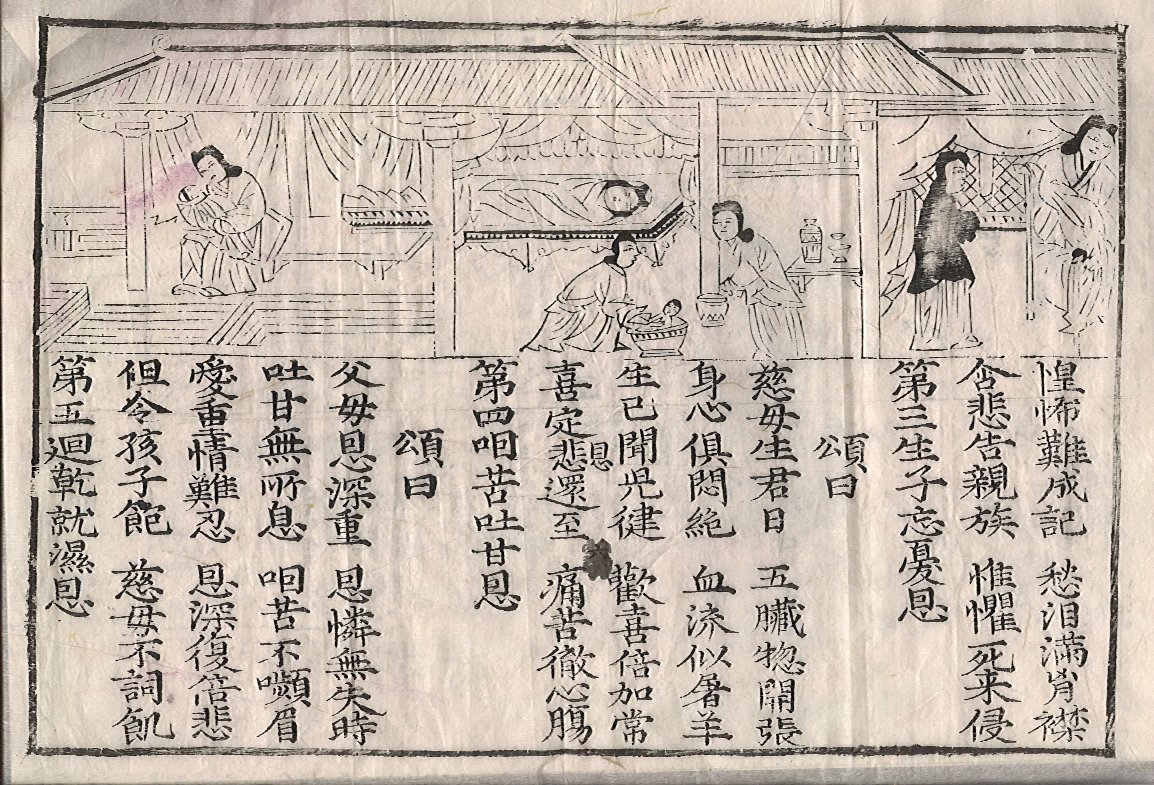 惶怖難成記 愁泪滿胷襟
含悲告親族 惟懼死来侵
第三生子忘憂恩
頌曰
慈母生君日 五臟㹅開張
身心俱悶絶 血流似屠羊
生已聞児健 歡喜倍加常
喜定悲還至 痛苦徹心膓
恩
第四咽苦吐甘恩
頌曰
父母恩深重 恩憐無失時
吐甘無所息 咽苦不嚬眉
愛重情難忍 恩深復倍悲
但令孩子飽 慈母不詞飢
第五迴乾就濕恩